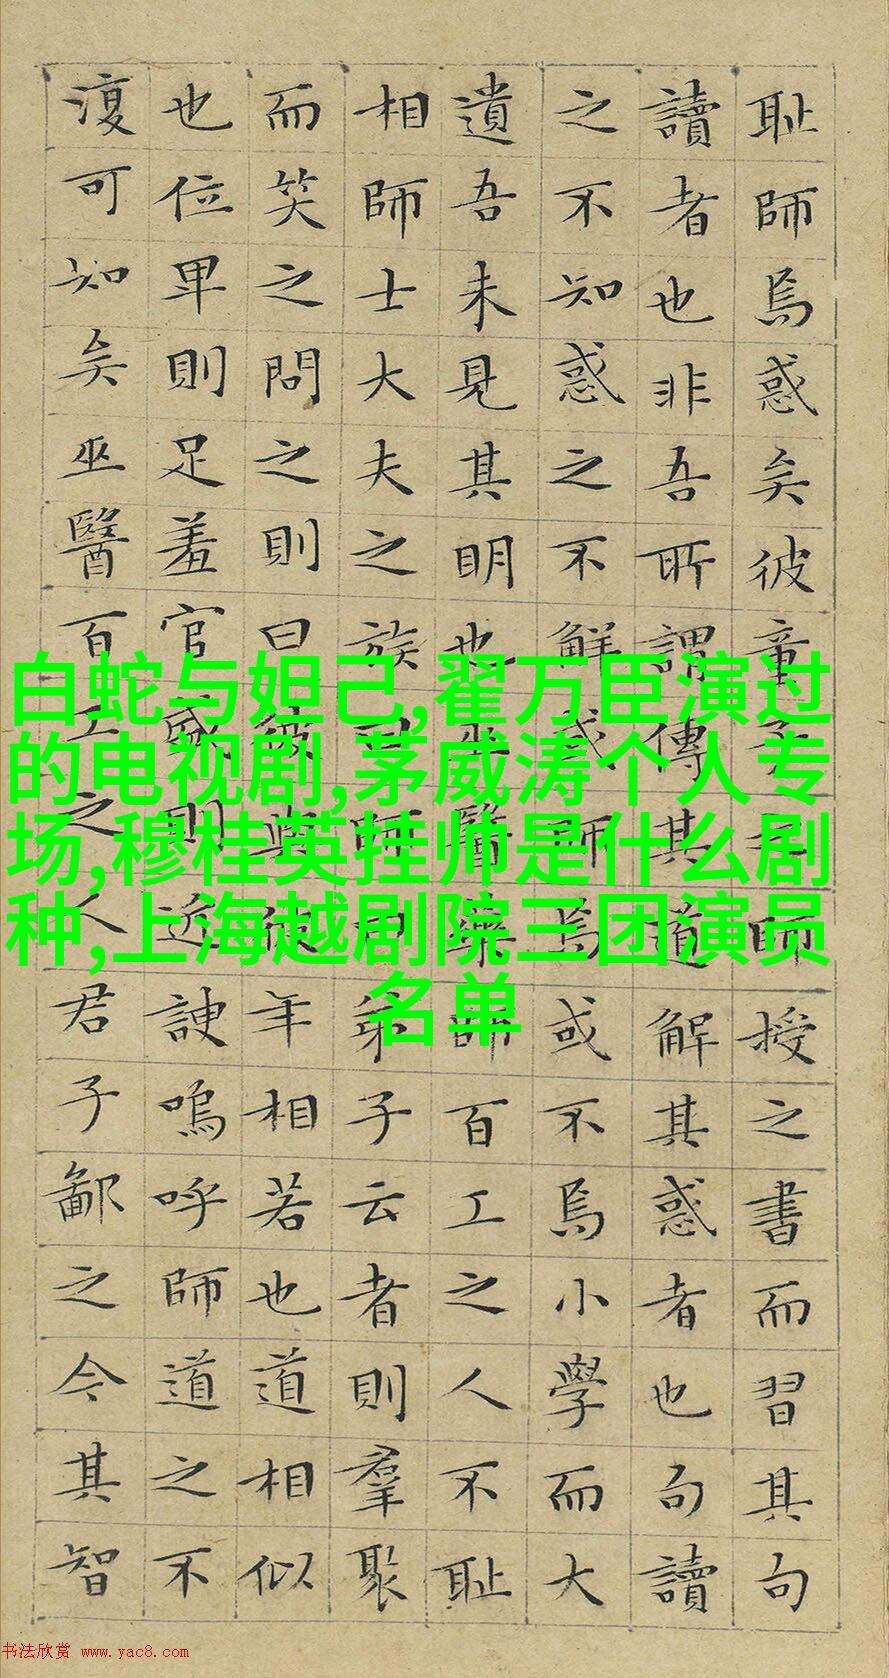 耻師焉惑矣彼童子之師授之書而習其句
讀者也非吾所謂傳其道解其惑者也句讀
之不知惑之不解或師焉或不焉小學而大
遺吾未見其明也巫醫樂師百工之人不耻
相師士大夫之族曰師曰弟子云者則羣聚
而笑之問之則曰彼與彼年相若也道相似
也位卑則足羞官盛則近諛嗚呼師道之不
復可知矣巫醫百工之人君子鄙之今其智
白蛇与妲己,翟万臣演过
的电视剧,茅威涛个人专
场,穆桂英挂帅是什么剧
种,上海越剧院三团演员
名单
书法欣赏 www.yac8.com